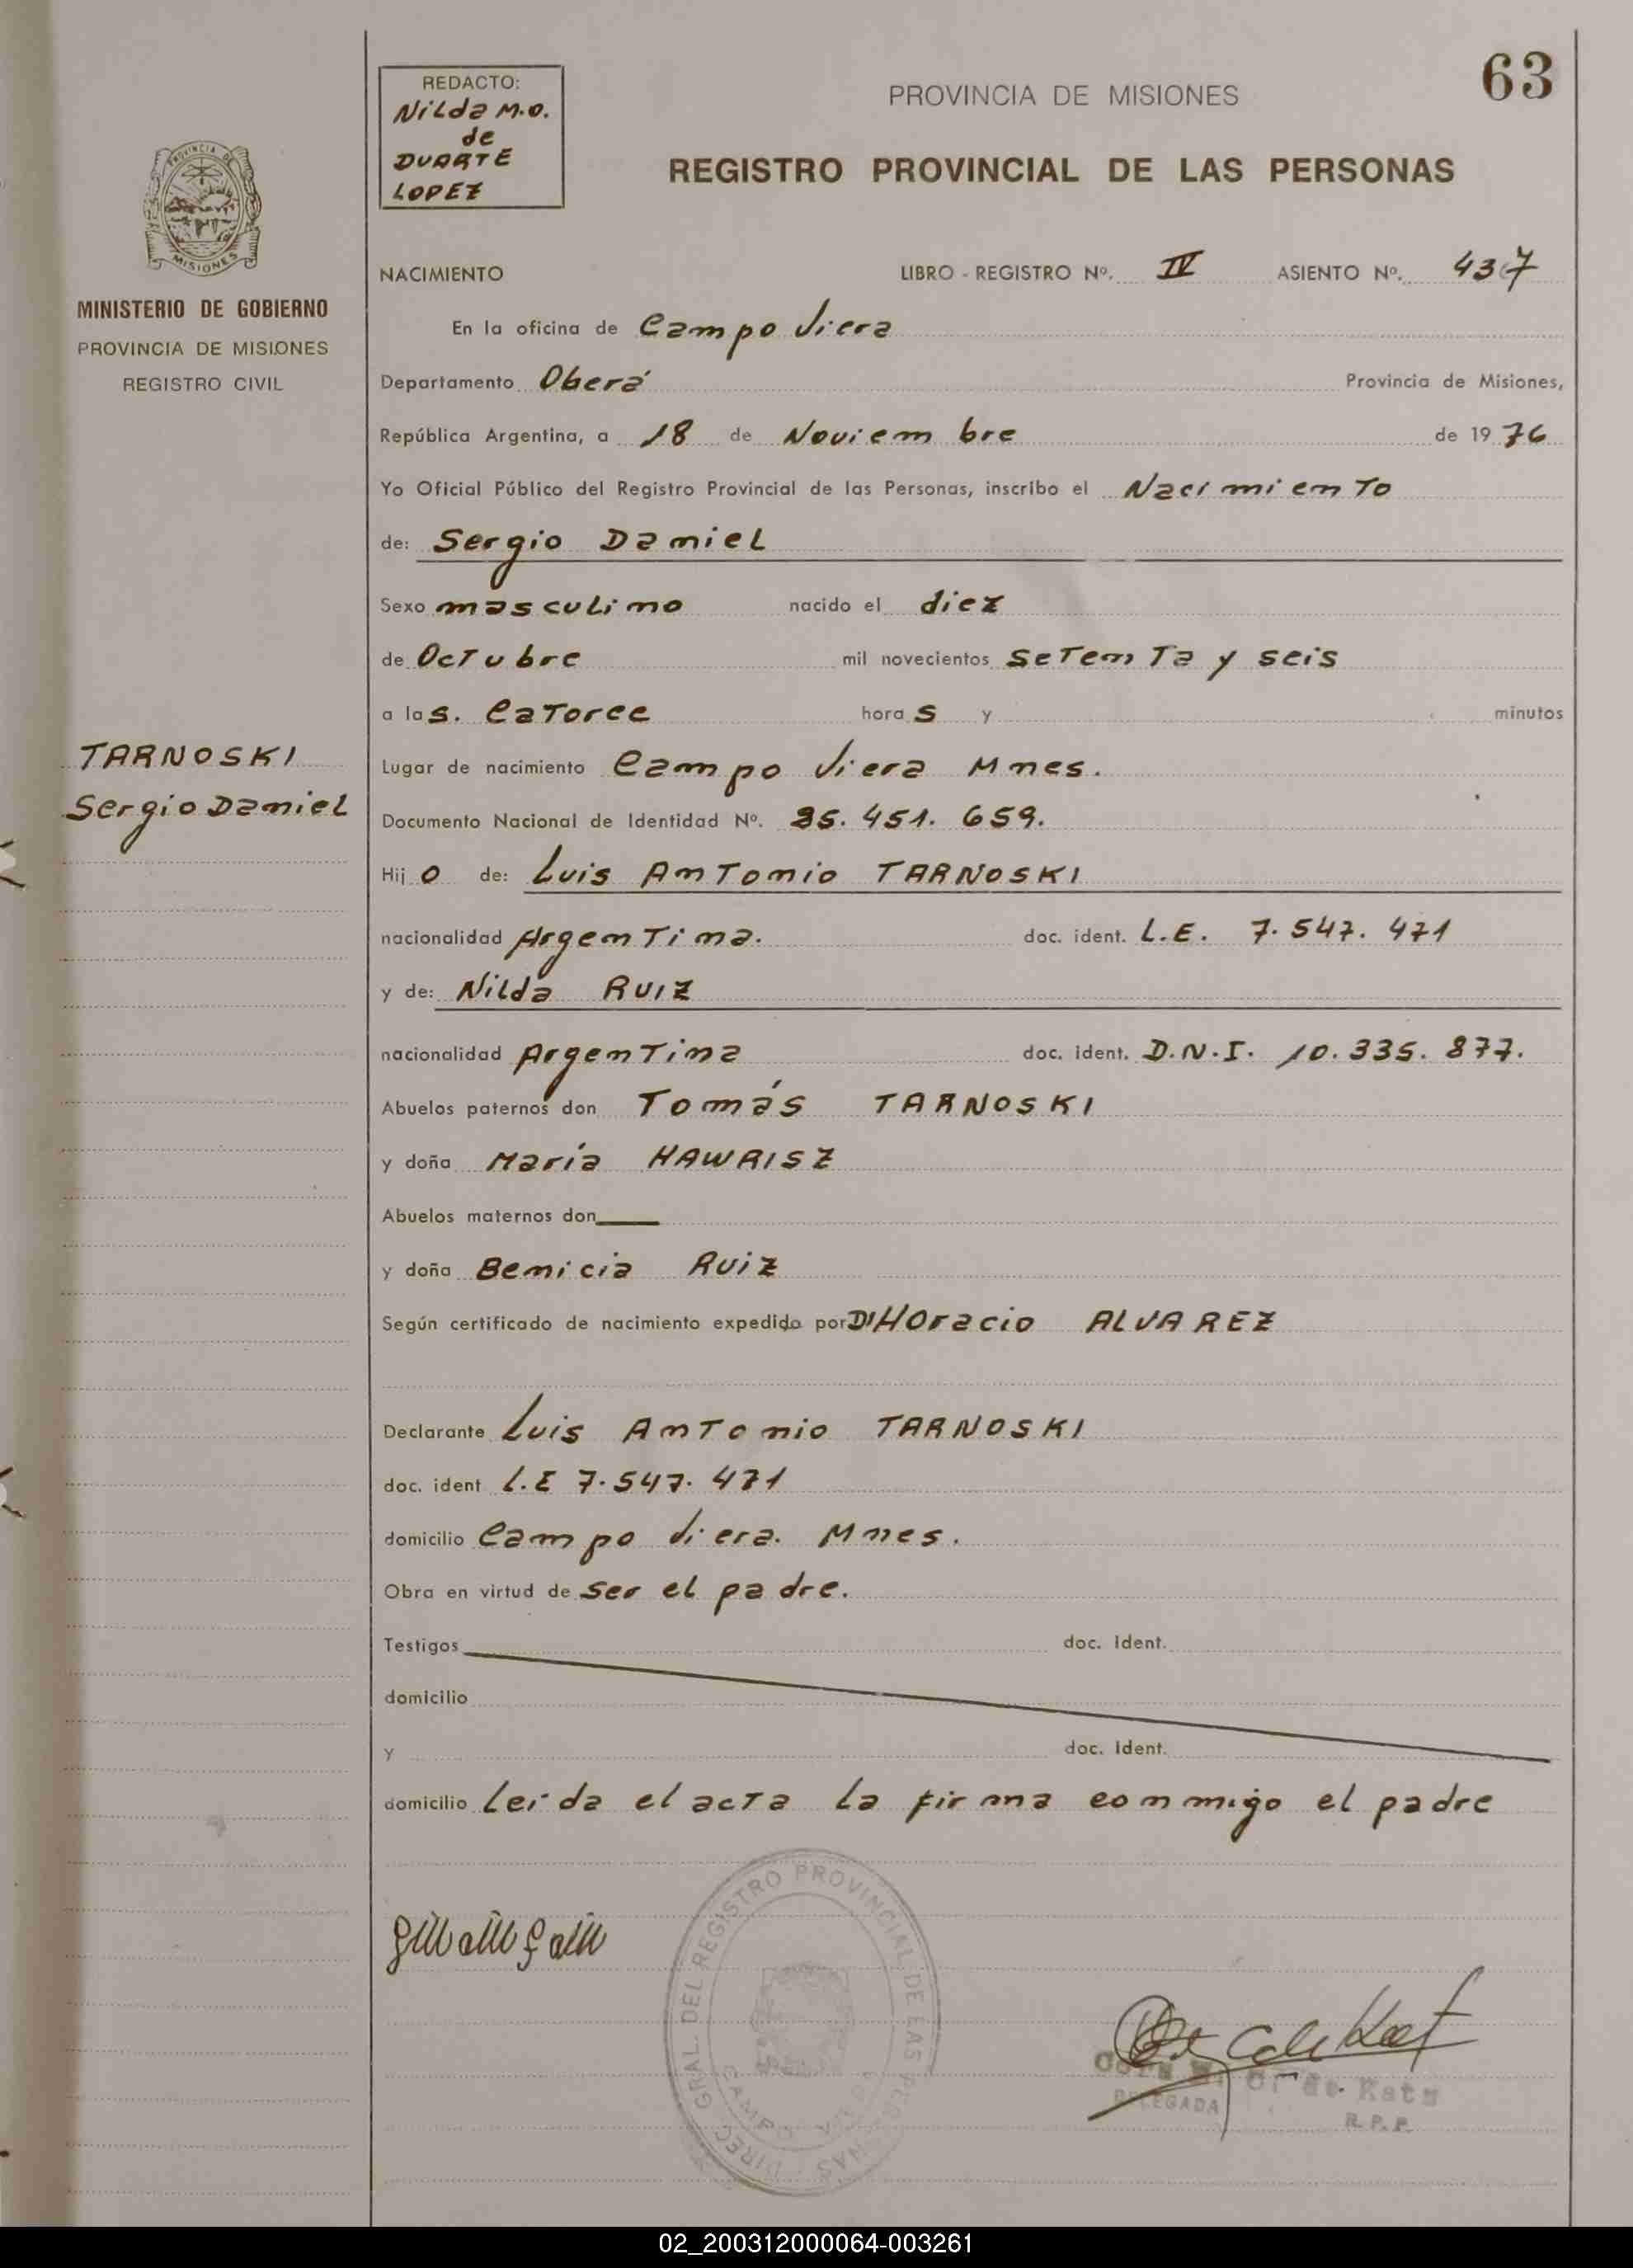 63
REDACTO:
Nilda M.O.
de
DUARTE
LOPEZ
PROVINCIA DE MISIONES
REGISTRO PROVINCIAL DE LAS PERSONAS
PROVINCIA DE
MISIONES
MINISTERIO DE GOBIERNO
PROVINCIA DE MISIONES
REGISTRO CIVIL
TARNOSKI
Sergio Daniel
NACIMIENTO LIBRO - REGISTRO Nº. IV ASIENTO Nº. 437
En la oficina de Campo Viera
Departamento Oberá Provincia de Misiones,
República Argentina, a 18 de Noviembre de 1976
Yo Oficial Público del Registro Provincial de las Personas, inscribo el Nacimiento
de: Sergio Daniel
Sexo masculino nacido el diez
de Octubre mil novecientos setenta y seis
a las. Catorce horas y minutos
Lugar de nacimiento Campo Viera Mnes.
Documento Nacional de Identidad Nº. 25.451.659.
Hijo de: Luis Antonio TARNOSKI
nacionalidad Argentina. doc. ident. L.E. 7.547.471
y de: Nilda RUIZ
nacionalidad Argentina doc. ident. D.N.I. 10.335.877.
Abuelos paternos don Tomás TARNOSKI
y doña María HAWRISZ
Abuelos maternos don
y doña Benicia Ruiz
Según certificado de nacimiento expedido por Dr Horacio ALVAREZ
Declarante Luis Antonio TARNOSKI
doc. ident L.E 7.547.471
domicilio Campo Viera. Mnes.
Obra en virtud de ser el padre.
Testigos doc. Ident.
domicilio
y doc. Ident.
domicilio Leida el acta la firma conmigo el padre
DIREC. GRAL. DEL REGISTRO PROVINCIAL DE LAS PERSONAS
CAMPO VIERA
de Katz
DELEGADA
R.P.P.
02_200312000064-003261